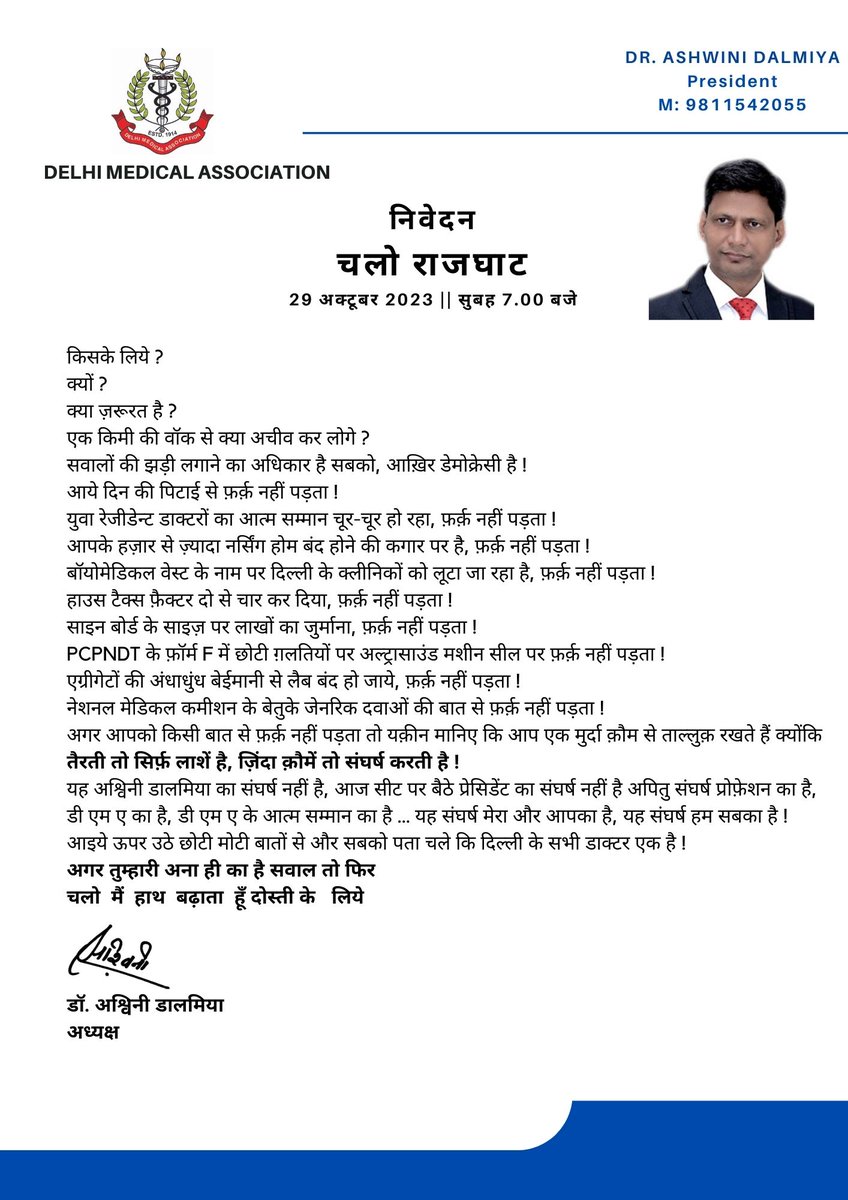 DR. ASHWINI DALMIYA
President
M: 9811542055
ESTD. 1914
DELHI MEDICAL ASSOCIATION
DELHI MEDICAL ASSOCIATION
निवेदन
चलो राजघाट
29 अक्टूबर 2023 || सुबह 7.00 बजे
किसके लिये ?
क्यों ?
क्या ज़रूरत है ?
एक किमी की वॉक से क्या अचीव कर लोगे ?
सवालों की झड़ी लगाने का अधिकार है सबको, आख़िर डेमोक्रेसी है !
आये दिन की पिटाई से फ़र्क़ नहीं पड़ता !
युवा रेजीडेन्ट डाक्टरों का आत्म सम्मान चूर-चूर हो रहा, फ़र्क़ नहीं पड़ता !
आपके हज़ार से ज़्यादा नर्सिंग होम बंद होने की कगार पर है, फ़र्क़ नहीं पड़ता !
बॉयोमेडिकल वेस्ट के नाम पर दिल्ली के क्लीनिकों को लूटा जा रहा है, फ़र्क़ नहीं पड़ता !
हाउस टैक्स फ़ैक्टर दो से चार कर दिया, फ़र्क़ नहीं पड़ता !
साइन बोर्ड के साइज़ पर लाखों का जुर्माना, फ़र्क़ नहीं पड़ता !
PCPNDT के फ़ॉर्म F में छोटी ग़लतियों पर अल्ट्रासाउंड मशीन सील पर फ़र्क़ नहीं पड़ता !
एग्रीगेटों की अंधाधुंध बेईमानी से लैब बंद हो जाये, फ़र्क़ नहीं पड़ता !
नेशनल मेडिकल कमीशन के बेतुके जेनरिक दवाओं की बात से फ़र्क़ नहीं पड़ता !
अगर आपको किसी बात से फ़र्क़ नहीं पड़ता तो यक़ीन मानिए कि आप एक मुर्दा क़ौम से ताल्लुक़ रखते हैं क्योंकि
तैरती तो सिर्फ़ लाशें है, ज़िंदा क़ौमें तो संघर्ष करती है !
यह अश्विनी डालमिया का संघर्ष नहीं है, आज सीट पर बैठे प्रेसिडेंट का संघर्ष नहीं है अपितु संघर्ष प्रोफ़ेशन का है,
डी एम ए का है, डी एम ए के आत्म सम्मान का है ... यह संघर्ष मेरा और आपका है, यह संघर्ष हम सबका है !
आइये ऊपर उठे छोटी मोटी बातों से और सबको पता चले कि दिल्ली के सभी डाक्टर एक है !
अगर तुम्हारी अना ही का है सवाल तो फिर
चलो मैं हाथ बढ़ाता हूँ दोस्ती के लिये
अश्विनी
डॉ. अश्विनी डालमिया
अध्यक्ष